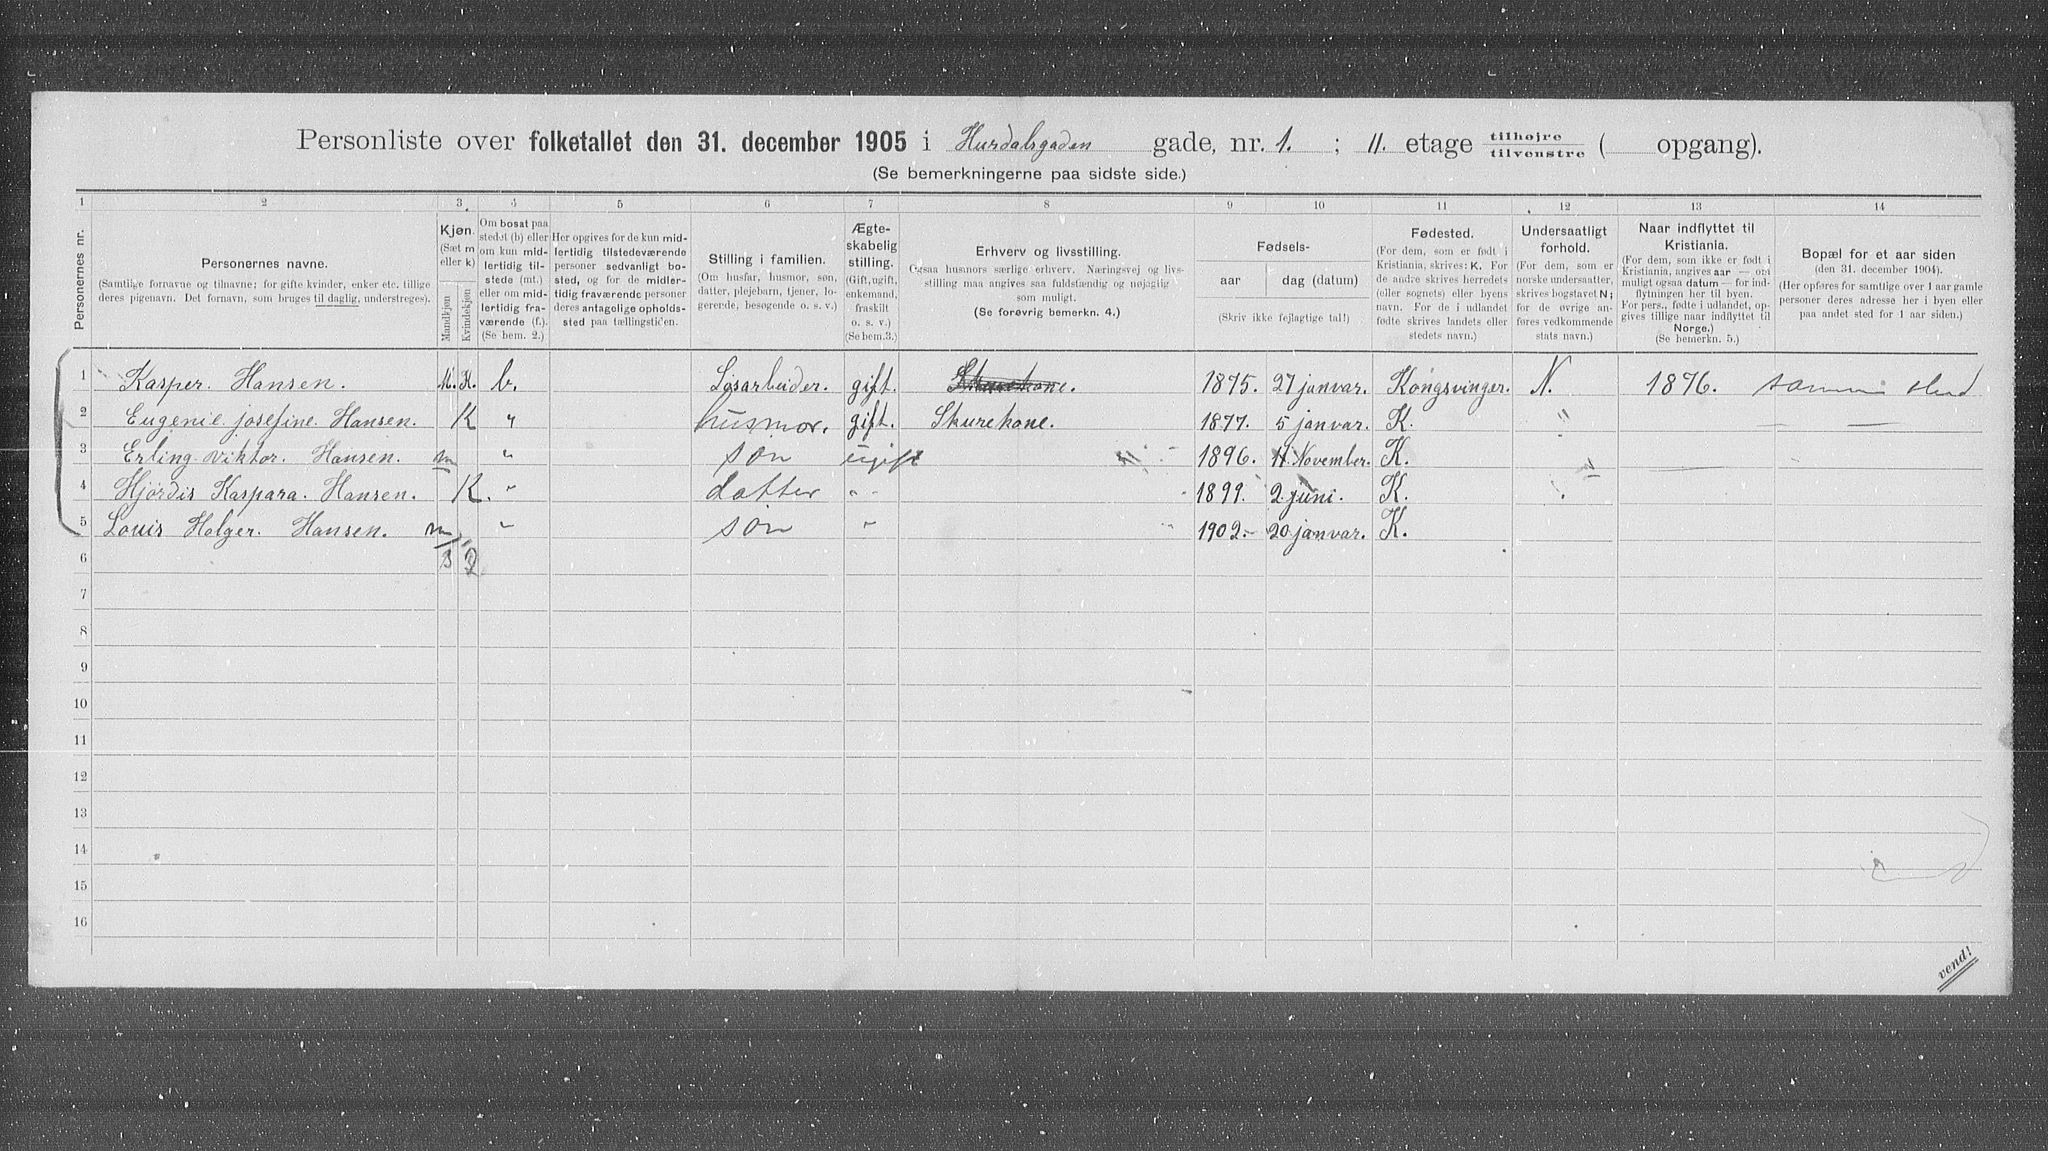 Personliste over folketallet den 31. december 1905 i Hurdalsgaden gade, nr. 1. ; 11. etage tilhøjre tilvenstre ( opgang).
(Se bemerkningerne paa sidste side.)
1 2 3. 4 5 6 7 8 9 10 11 12 13 14
Personernes nr.
Personernes navne.
(Samtlige fornavne og tilnavne; for gifte kvinder, enker etc. tillige
deres pigenavn. Det fornavn, som bruges til daglig, understreges).
Kjøn.
(Sæt m
eller k)
Mandkjøn
Kvindekjøn
Om bosat paa
stedet (b) eller
om kun mid-
lertidig til-
stede (mt.)
eller om mid-
lertidig fra-
værende (f.).
(Se bem. 2.)
Her opgives for de kun mid-
lertidig tilstedeværende
personer sedvanligt bo-
sted, og for de midler-
tidig fraværende personer
deres antagelige opholds-
sted paa tællingstiden.
Stilling i familien.
(Om husfar, husmor, søn,
datter, plejebarn, tjener, lo-
gerende, besøgende o. s. v.)
Ægte-
skabelig
stilling.
(Gift, ugift,
enkemand,
fraskilt
o. s. v.)
(Se bem.3.)
Erhverv og livsstilling.
Ogsaa husmors særlige erhverv. Næringsvej og livs-
stilling maa angives saa fuldstændig og nøjagtig
som muligt.
(Se forøvrig bemerkn. 4.)
Fødsels-
aar dag (datum)
(Skriv ikke fejlagtige tal!)
Fødested.
(For dem, som er født i
Kristiania, skrives: K. For
de andre skrives herredets
(eller sognets) eller byens
navn. For de i udlandet
fødte skrives landets eller
stedets navn.)
Undersaatligt
forhold.
(For dem, som er
norske undersaatter,
skrives bogstavet N;
for de øvrige an-
føres vedkommende
stats navn.)
Naar indflyttet til
Kristiania.
(For dem, som ikke er født i
Kristiania, angives aar — om
muligt ogsaa datum — for ind-
flytningen her til byen.
For pers., fødte i udlandet, op-
gives tillige naar indflyttet til
Norge.)
(Se bemerkn. 5.)
Bopæl for et aar siden
(den 31. december 1904).
(Her opføres for samtlige over 1 aar gamle
personer deres adresse her i byen eller
paa andet sted for 1 aar siden.)
1 Kasper. Hansen. M. K. b. Løsarbeider. gift. Skurekone. 1875. 27 janvar. Kongsvinger. N. 1876. samme sted
2 Eugenie josefine Hansen. K " husmor. gift. Skurekone. 1877. 5 janvar. K. " — —
3 Erling Viktor. Hansen. m " søn ugift 1896. 11 November. K. "
4 Hjørdis Kaspara. Hansen. K. " datter " 1899. 2 juni. K.
5 Louis Holger. Hansen. m " søn " 1902. 20 janvar. K.
6 3 2
7
8
9
10
11
12
13
14
15
16
vend!